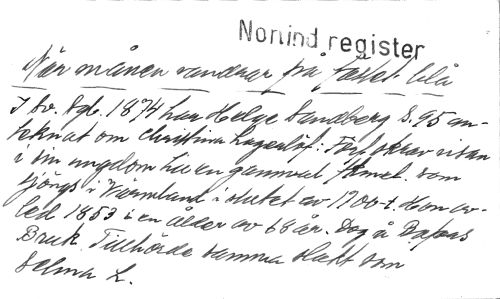 Nomind register
När månen vandrar på fästet blå
I Sv. Vgb. 1874 har Helge Sandberg S. 95 an-
tecknat om Christina Lagerlöf: Förf. skrev visan
i sin ungdom till en gammal  som
sjöngs i Värmland i slutet av 1700-t. Hon av-
led 1853 i en ålder av 68 år. Dog å  
Bruk. Tillhörde samma släkt som
Selma L.